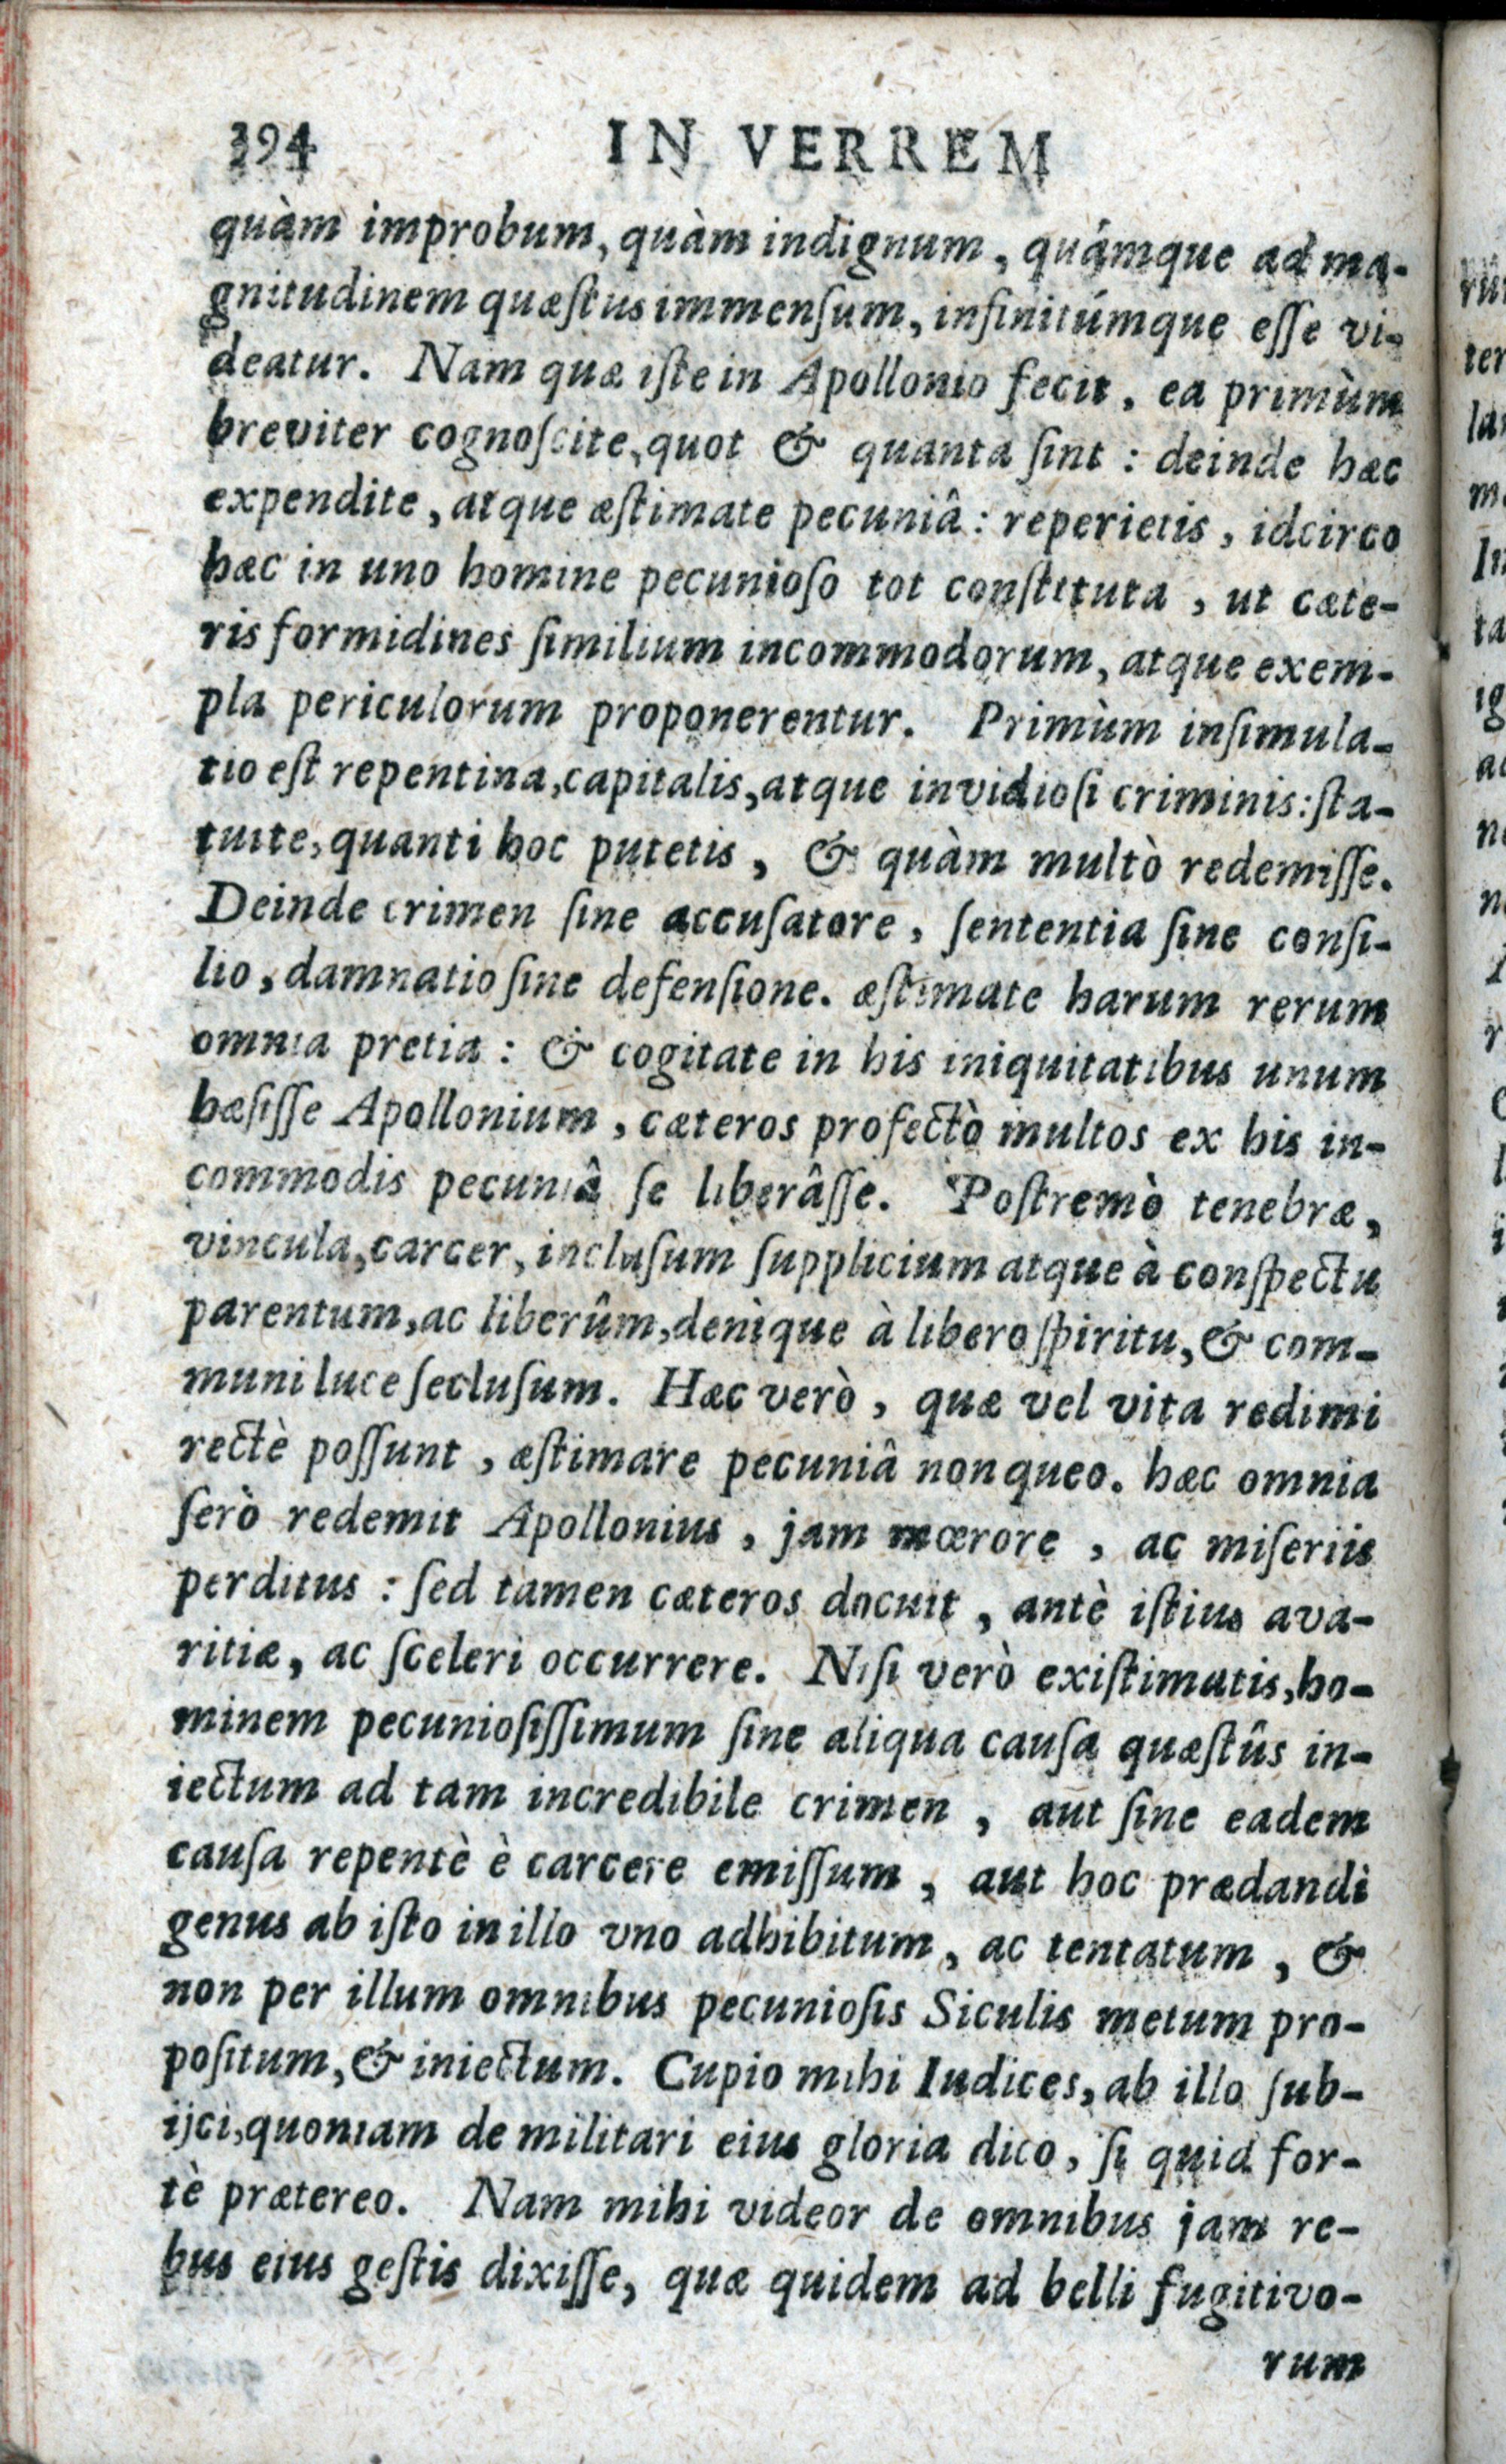 394 IN VERREM
quàm improbum, quàm indignum, quámque ad ma-
gnitudinem quæſtus immenſum, infinitúmque eſſe vi-
deatur. Nam quæ iſte in Apollonio fecit, ea primùm
breviter cognoſcite, quot & quanta ſint : deinde hæc
expendite, atque æſtimate pecuniâ : reperietis, idcirco
hæc in uno homine pecunioſo tot conſtituta, ut cæte-
ris formidines ſimilium incommodorum, atque exem-
pla periculorum proponerentur. Primùm inſimula-
tio eſt repentina, capitalis, atque invidioſi criminis : ſta-
tuite, quanti hoc putetis, & quàm multò redemiſſe.
Deinde crimen ſine accuſatore, ſententia ſine conſi-
lio, damnatio ſine defenſione. æſtimate harum rerum
omnia pretia : & cogitate in his iniquitatibus unum
hæſiſſe Apollonium, cæteros profectò multos ex his in-
commodis pecuniâ ſe liberâſſe. Poſtremò tenebræ,
vincula, carcer, incluſum ſupplicium atque à conſpectu
parentum, ac liberûm, denique à libero ſpiritu, & com-
muni luce ſecluſum. Hæc verò, quæ vel vita redimi
rectè poſſunt, æſtimare pecuniâ non queo. hæc omnia
ſerò redemit Apollonius, jam mœrore, ac miſeriis
perditus : ſed tamen cæteros docuit, antè iſtius ava-
ritiæ, ac ſceleri occurrere. Niſi verò exiſtimatis, ho-
minem pecunioſiſſimum ſine aliqua cauſa quæſtûs in-
iectum ad tam incredibile crimen, aut ſine eadem
cauſa repentè è carcere emiſſum, aut hoc prædandi
genus ab iſto in illo vno adhibitum, ac tentatum, &
non per illum omnibus pecunioſis Siculis metum pro-
poſitum, & iniectum. Cupio mihi Iudices, ab illo ſub-
ijci, quoniam de militari eius gloria dico, ſi quid for-
tè prætereo. Nam mihi videor de omnibus jam re-
bus eius geſtis dixiſſe, quæ quidem ad belli fugitivo-
rum